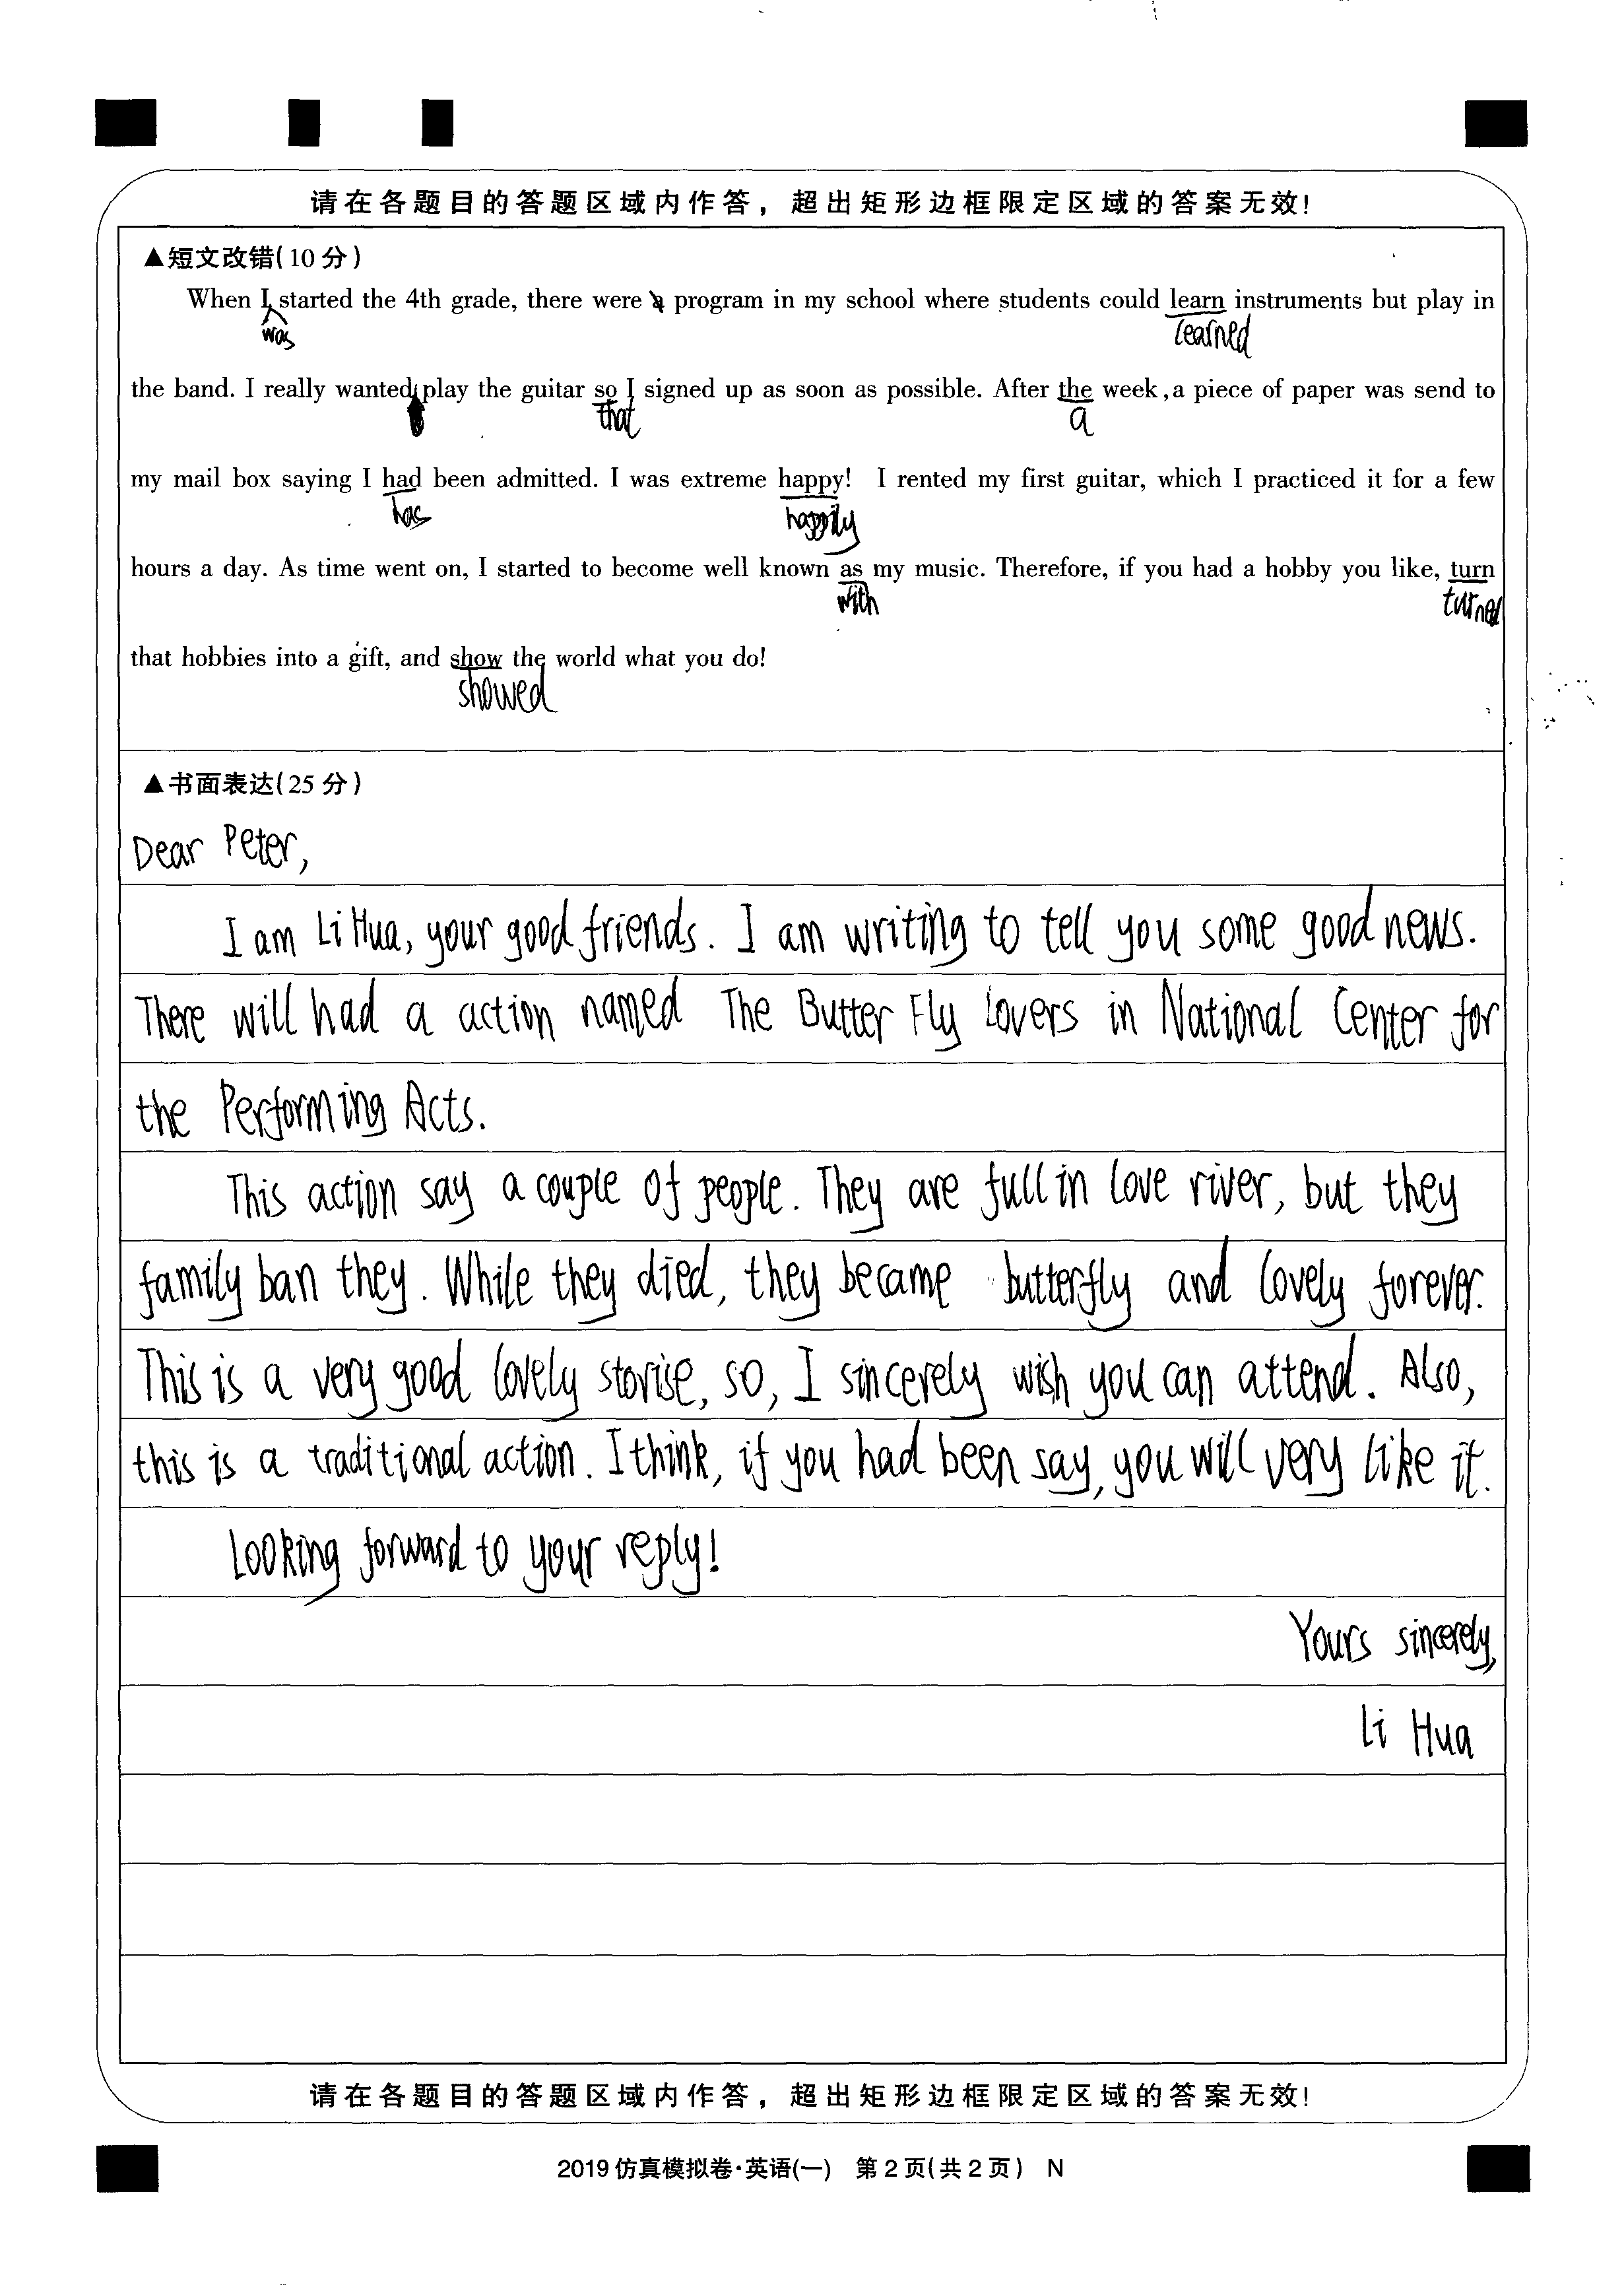 请在各题目的答题区域内作答，超出矩形边框限定区域的答案无效!
▲短文改错(10分)
When I started the 4th grade, there were a program in my school where students could learn instruments but play in
was learned
the band. I really wanted play the guitar so I signed up as soon as possible. After the week, a piece of paper was send to
that a
my mail box saying I had been admitted. I was extreme happy! I rented my first guitar, which I practiced it for a few
has happily
hours a day. As time went on, I started to become well known as my music. Therefore, if you had a hobby you like, turn
with turned
that hobbies into a gift, and show the world what you do!
showed
▲书面表达(25分)
Dear Peter,
I am Li Hua, your good friends. I am writing to tell you some good news.
There will had a action named The Butter Fly Lovers in National Center for
the Performing Acts.
This action say a couple of people. They are full in love river, but they
family ban they. While they died, they became butterfly and lovely forever.
This is a very good lovely storise, so, I sincerely wish you can attend. Also,
this is a traditional action. I think, if you had been say, you will very like it.
Looking forward to your reply!
Yours sincerely,
Li Hua
请在各题目的答题区域内作答，超出矩形边框限定区域的答案无效!
2019仿真模拟卷·英语(一) 第2页(共2页) N